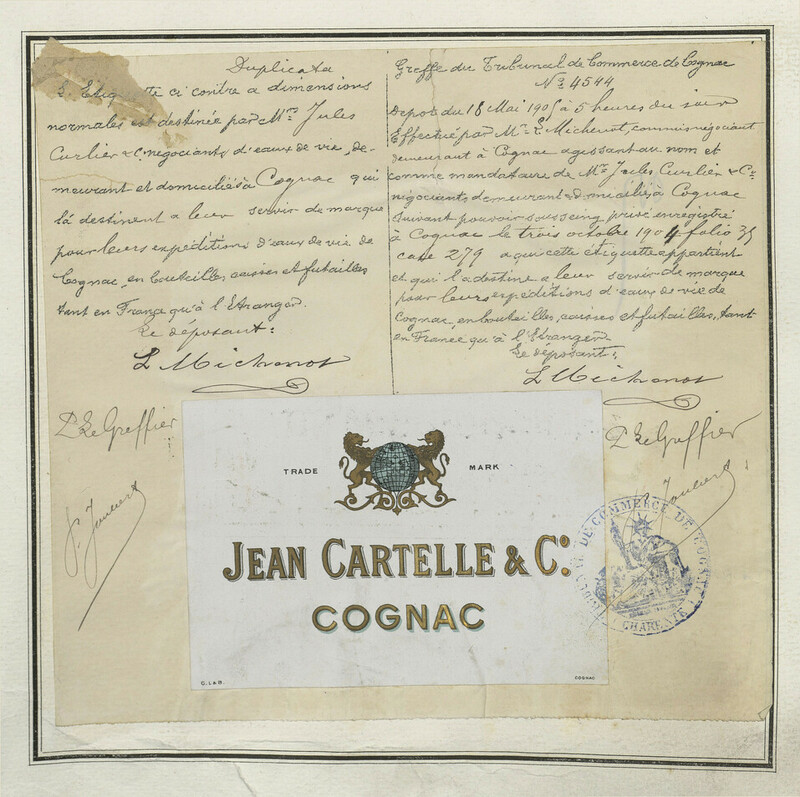 Duplicata
L'Etiquette ci contre a dimensions
normales est destinée par Mrs Jules
Curlier & C. negociants d'eaux de vie, de-
meurant et domiciliés à Cognac qui
la destinent a leur servir de marque
pour leurs expéditions d'eaux de vie de
Cognac, en bouteilles, caisses et futailles
tant en France qu'à l'Etranger.
Le déposant:
L Michenot
P. Le Greffier
Greffe du Tribunal de Commerce de Cognac
No 4544
Depot du 18 Mai 1905 à 5 heures du soir
Effectué par Mr L. Michenot, commis negociant
demeurant à Cognac agissant au nom et
comme mandataire de Mrs Jules Curlier & Cie
negociants, demeurant & domiciliés à Cognac
suivant pouvoir sous seing privé enregistré
à Cognac le trois octobre 1904 folio 35
case 279 a qui cette étiquette appartient
et qui l'a destine a leur servir de marque
pour leurs expéditions d'eaux de vie de
Cognac, en bouteilles, caisses et futailles, tant
en France qu'à l'Etranger
Le déposant:
L Michenot
P. Le Greffier
TRADE MARK
JEAN CARTELLE & Co.
COGNAC
G. L & B.
COGNAC
TRIBUNAL DE COMMERCE DE COGNAC
CHARENTE